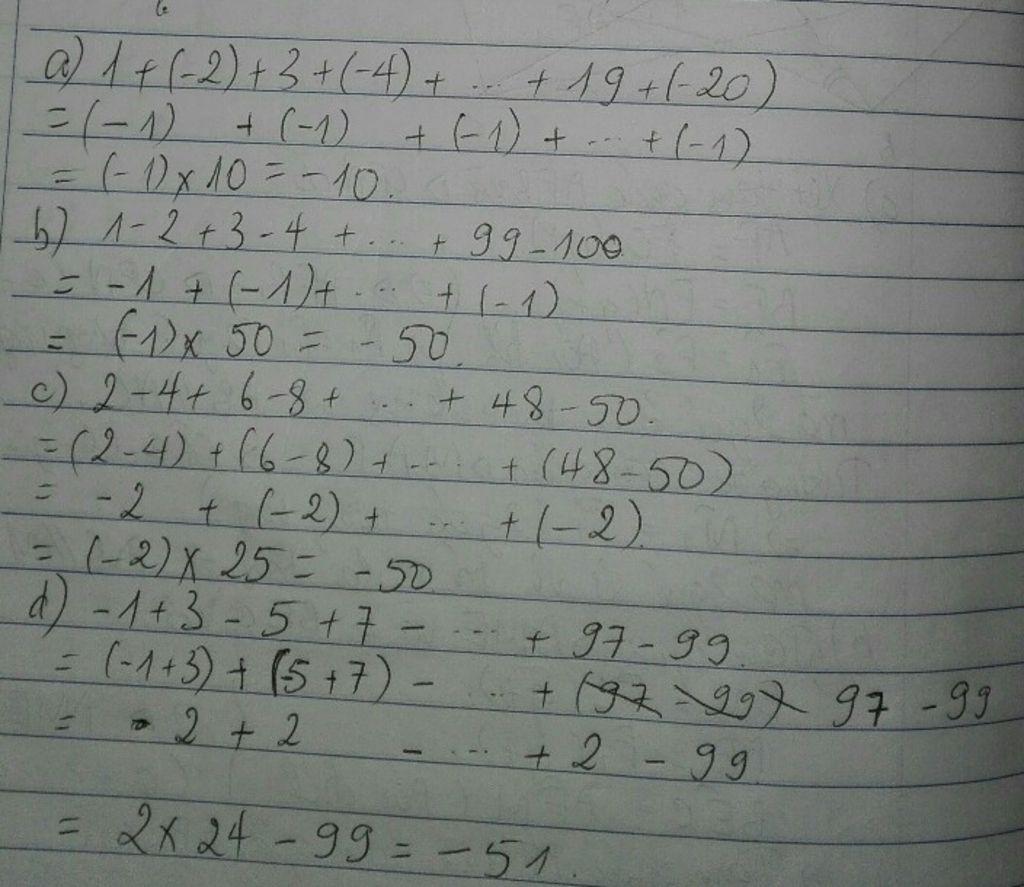 a) 1 + (-2) + 3 + (-4) + ... + 19 + (-20)
= (-1) + (-1) + (-1) + ... + (-1)
= (-1) x 10 = -10.
b) 1 - 2 + 3 - 4 + ... + 99 - 100
= -1 + (-1) + ... + (-1)
= (-1) x 50 = -50.
c) 2 - 4 + 6 - 8 + ... + 48 - 50.
= (2 - 4) + (6 - 8) + ... + (48 - 50)
= -2 + (-2) + ... + (-2).
= (-2) x 25 = -50
d) -1 + 3 - 5 + 7 - ... + 97 - 99.
= (-1 + 3) + (-5 + 7) - ... + (97 - 99) 97 - 99
= 2 + 2 - ... + 2 - 99
= 2 x 24 - 99 = -51.